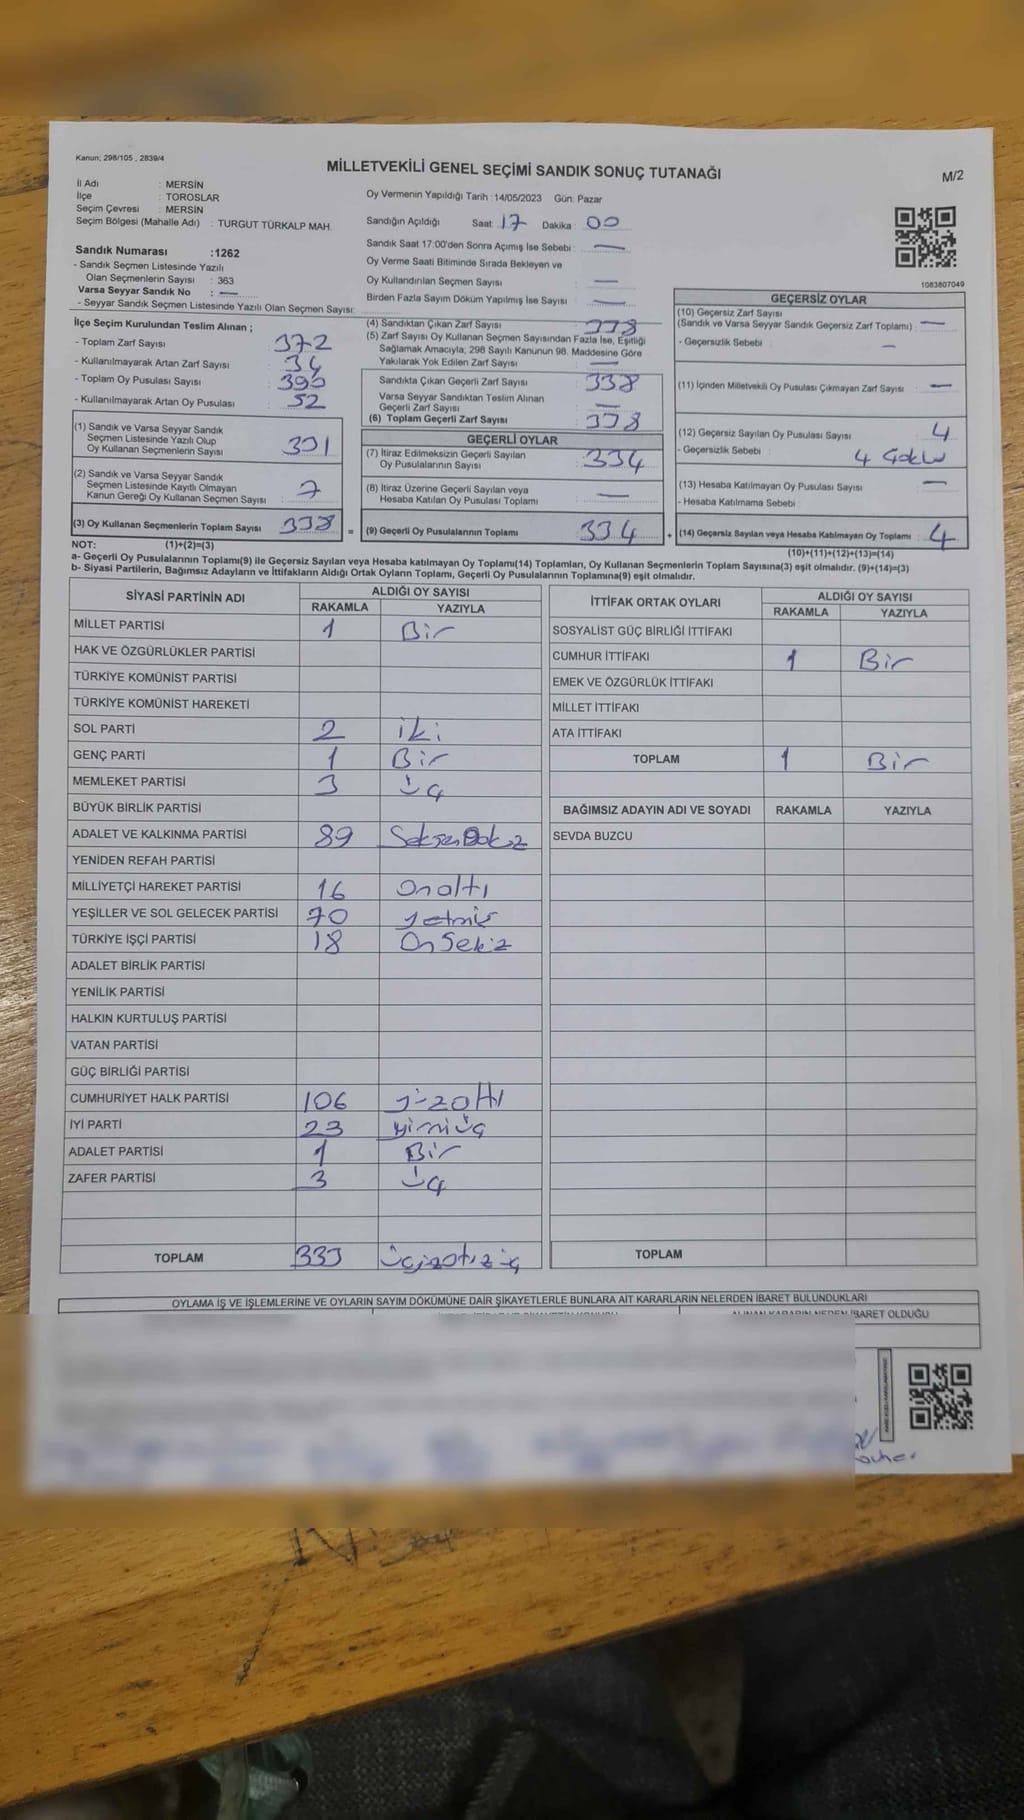 Kanun; 298/105 , 2839/4
MİLLETVEKİLİ GENEL SEÇİMİ SANDIK SONUÇ TUTANAĞI
M/2
İl Adı : MERSİN
İlçe : TOROSLAR
Seçim Çevresi : MERSİN
Seçim Bölgesi (Mahalle Adı) : TURGUT TÜRKALP MAH.
Oy Vermenin Yapıldığı Tarih :14/05/2023 Gün: Pazar
Sandığın Açıldığı Saat: 17 Dakika : 00
Sandık Saat 17:00'den Sonra Açımış İse Sebebi : —
Oy Verme Saati Bitiminde Sırada Bekleyen ve
Oy Kullandırılan Seçmen Sayısı : —
Birden Fazla Sayım Döküm Yapılmış İse Sayısı : —
1083807049
Sandık Numarası :1262
- Sandık Seçmen Listesinde Yazılı
Olan Seçmenlerin Sayısı : 363
Varsa Seyyar Sandık No : —
- Seyyar Sandık Seçmen Listesinde Yazılı Olan Seçmen Sayısı:
İlçe Seçim Kurulundan Teslim Alınan ;
- Toplam Zarf Sayısı : 372
- Kullanılmayarak Artan Zarf Sayısı : 34
- Toplam Oy Pusulası Sayısı : 390
- Kullanılmayarak Artan Oy Pusulası : 52
(1) Sandık ve Varsa Seyyar Sandık
Seçmen Listesinde Yazılı Olup
Oy Kullanan Seçmenlerin Sayısı : 331
(2) Sandık ve Varsa Seyyar Sandık
Seçmen Listesinde Kayıtlı Olmayan
Kanun Gereği Oy Kullanan Seçmen Sayısı : 7
(3) Oy Kullanan Seçmenlerin Toplam Sayısı : 338 =
(4) Sandıktan Çıkan Zarf Sayısı : 338
(5) Zarf Sayısı Oy Kullanan Seçmen Sayısından Fazla İse, Eşitliği
Sağlamak Amacıyla, 298 Sayılı Kanunun 98. Maddesine Göre
Yakılarak Yok Edilen Zarf Sayısı : —
Sandıkta Çıkan Geçerli Zarf Sayısı : 338
Varsa Seyyar Sandıktan Teslim Alınan
Geçerli Zarf Sayısı : —
(6) Toplam Geçerli Zarf Sayısı : 338
GEÇERLİ OYLAR
(7) İtiraz Edilmeksizin Geçerli Sayılan
Oy Pusulalarının Sayısı : 334
(8) İtiraz Üzerine Geçerli Sayılan veya
Hesaba Katılan Oy Pusulası Toplamı : —
(9) Geçerli Oy Pusulalarının Toplamı : 334 +
GEÇERSİZ OYLAR
(10) Geçersiz Zarf Sayısı
(Sandık ve Varsa Seyyar Sandık Geçersiz Zarf Toplamı) : —
- Geçersizlik Sebebi : —
(11) İçinden Milletvekili Oy Pusulası Çıkmayan Zarf Sayısı : —
(12) Geçersiz Sayılan Oy Pusulası Sayısı : 4
- Geçersizlik Sebebi : 4
(13) Hesaba Katılmayan Oy Pusulası Sayısı : —
- Hesaba Katılmama Sebebi :
(14) Geçersiz Sayılan veya Hesaba Katılmayan Oy Toplamı : 4
NOT: (1)+(2)=(3)
(10)+(11)+(12)+(13)=(14)
a- Geçerli Oy Pusulalarının Toplamı(9) ile Geçersiz Sayılan veya Hesaba katılmayan Oy Toplamı(14) Toplamları, Oy Kullanan Seçmenlerin Toplam Sayısına(3) eşit olmalıdır. (9)+(14)=(3)
b- Siyasi Partilerin, Bağımsız Adayların ve İttifakların Aldığı Ortak Oyların Toplamı, Geçerli Oy Pusulalarının Toplamına(9) eşit olmalıdır.
SİYASİ PARTİNİN ADI ALDIĞI OY SAYISI
RAKAMLA YAZIYLA
MİLLET PARTİSİ 1 Bir
HAK VE ÖZGÜRLÜKLER PARTİSİ
TÜRKİYE KOMÜNİST PARTİSİ
TÜRKİYE KOMÜNİST HAREKETİ
SOL PARTİ 2 iki
GENÇ PARTİ 1 Bir
MEMLEKET PARTİSİ 3 üç
BÜYÜK BİRLİK PARTİSİ
ADALET VE KALKINMA PARTİSİ 89 SeksenDokuz
YENİDEN REFAH PARTİSİ
MİLLİYETÇİ HAREKET PARTİSİ 16 Onaltı
YEŞİLLER VE SOL GELECEK PARTİSİ 70 yetmiş
TÜRKİYE İŞÇİ PARTİSİ 18 OnSekiz
ADALET BİRLİK PARTİSİ
YENİLİK PARTİSİ
HALKIN KURTULUŞ PARTİSİ
VATAN PARTİSİ
GÜÇ BİRLİĞİ PARTİSİ
CUMHURİYET HALK PARTİSİ 106 yüzaltı
İYİ PARTİ 23 yirmiüç
ADALET PARTİSİ 1 Bir
ZAFER PARTİSİ 3 üç
TOPLAM 333 üçyüzotuzüç
İTTİFAK ORTAK OYLARI ALDIĞI OY SAYISI
RAKAMLA YAZIYLA
SOSYALİST GÜÇ BİRLİĞİ İTTİFAKI
CUMHUR İTTİFAKI 1 Bir
EMEK VE ÖZGÜRLÜK İTTİFAKI
MİLLET İTTİFAKI
ATA İTTİFAKI
TOPLAM 1 Bir
BAĞIMSIZ ADAYIN ADI VE SOYADI RAKAMLA YAZIYLA
SEVDA BUZCU
TOPLAM
OYLAMA İŞ VE İŞLEMLERİNE VE OYLARIN SAYIM DÖKÜMÜNE DAİR ŞİKAYETLERLE BUNLARA AİT KARARLARIN NELERDEN İBARET BULUNDUKLARI
ALINAN KARARIN NEDEN İBARET OLDUĞU